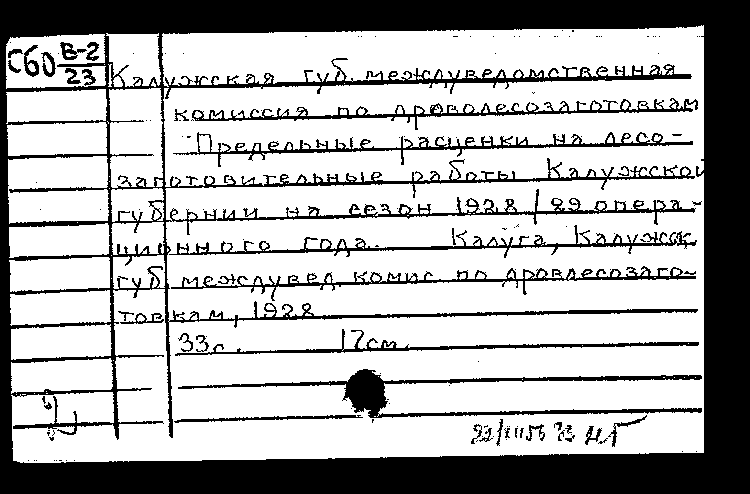 Сбо В-2/23
Калужская губ. междуведомственная
комиссия по дроволесозаготовкам
Предельные расценки на лесо-
заготовительные работы Калужской
губернии на сезон 1928/29 опера-
ционного года. Калуга, Калужск.
губ. междувед. комис. по дровлесозаго-
товкам, 1928
33с. 17см.